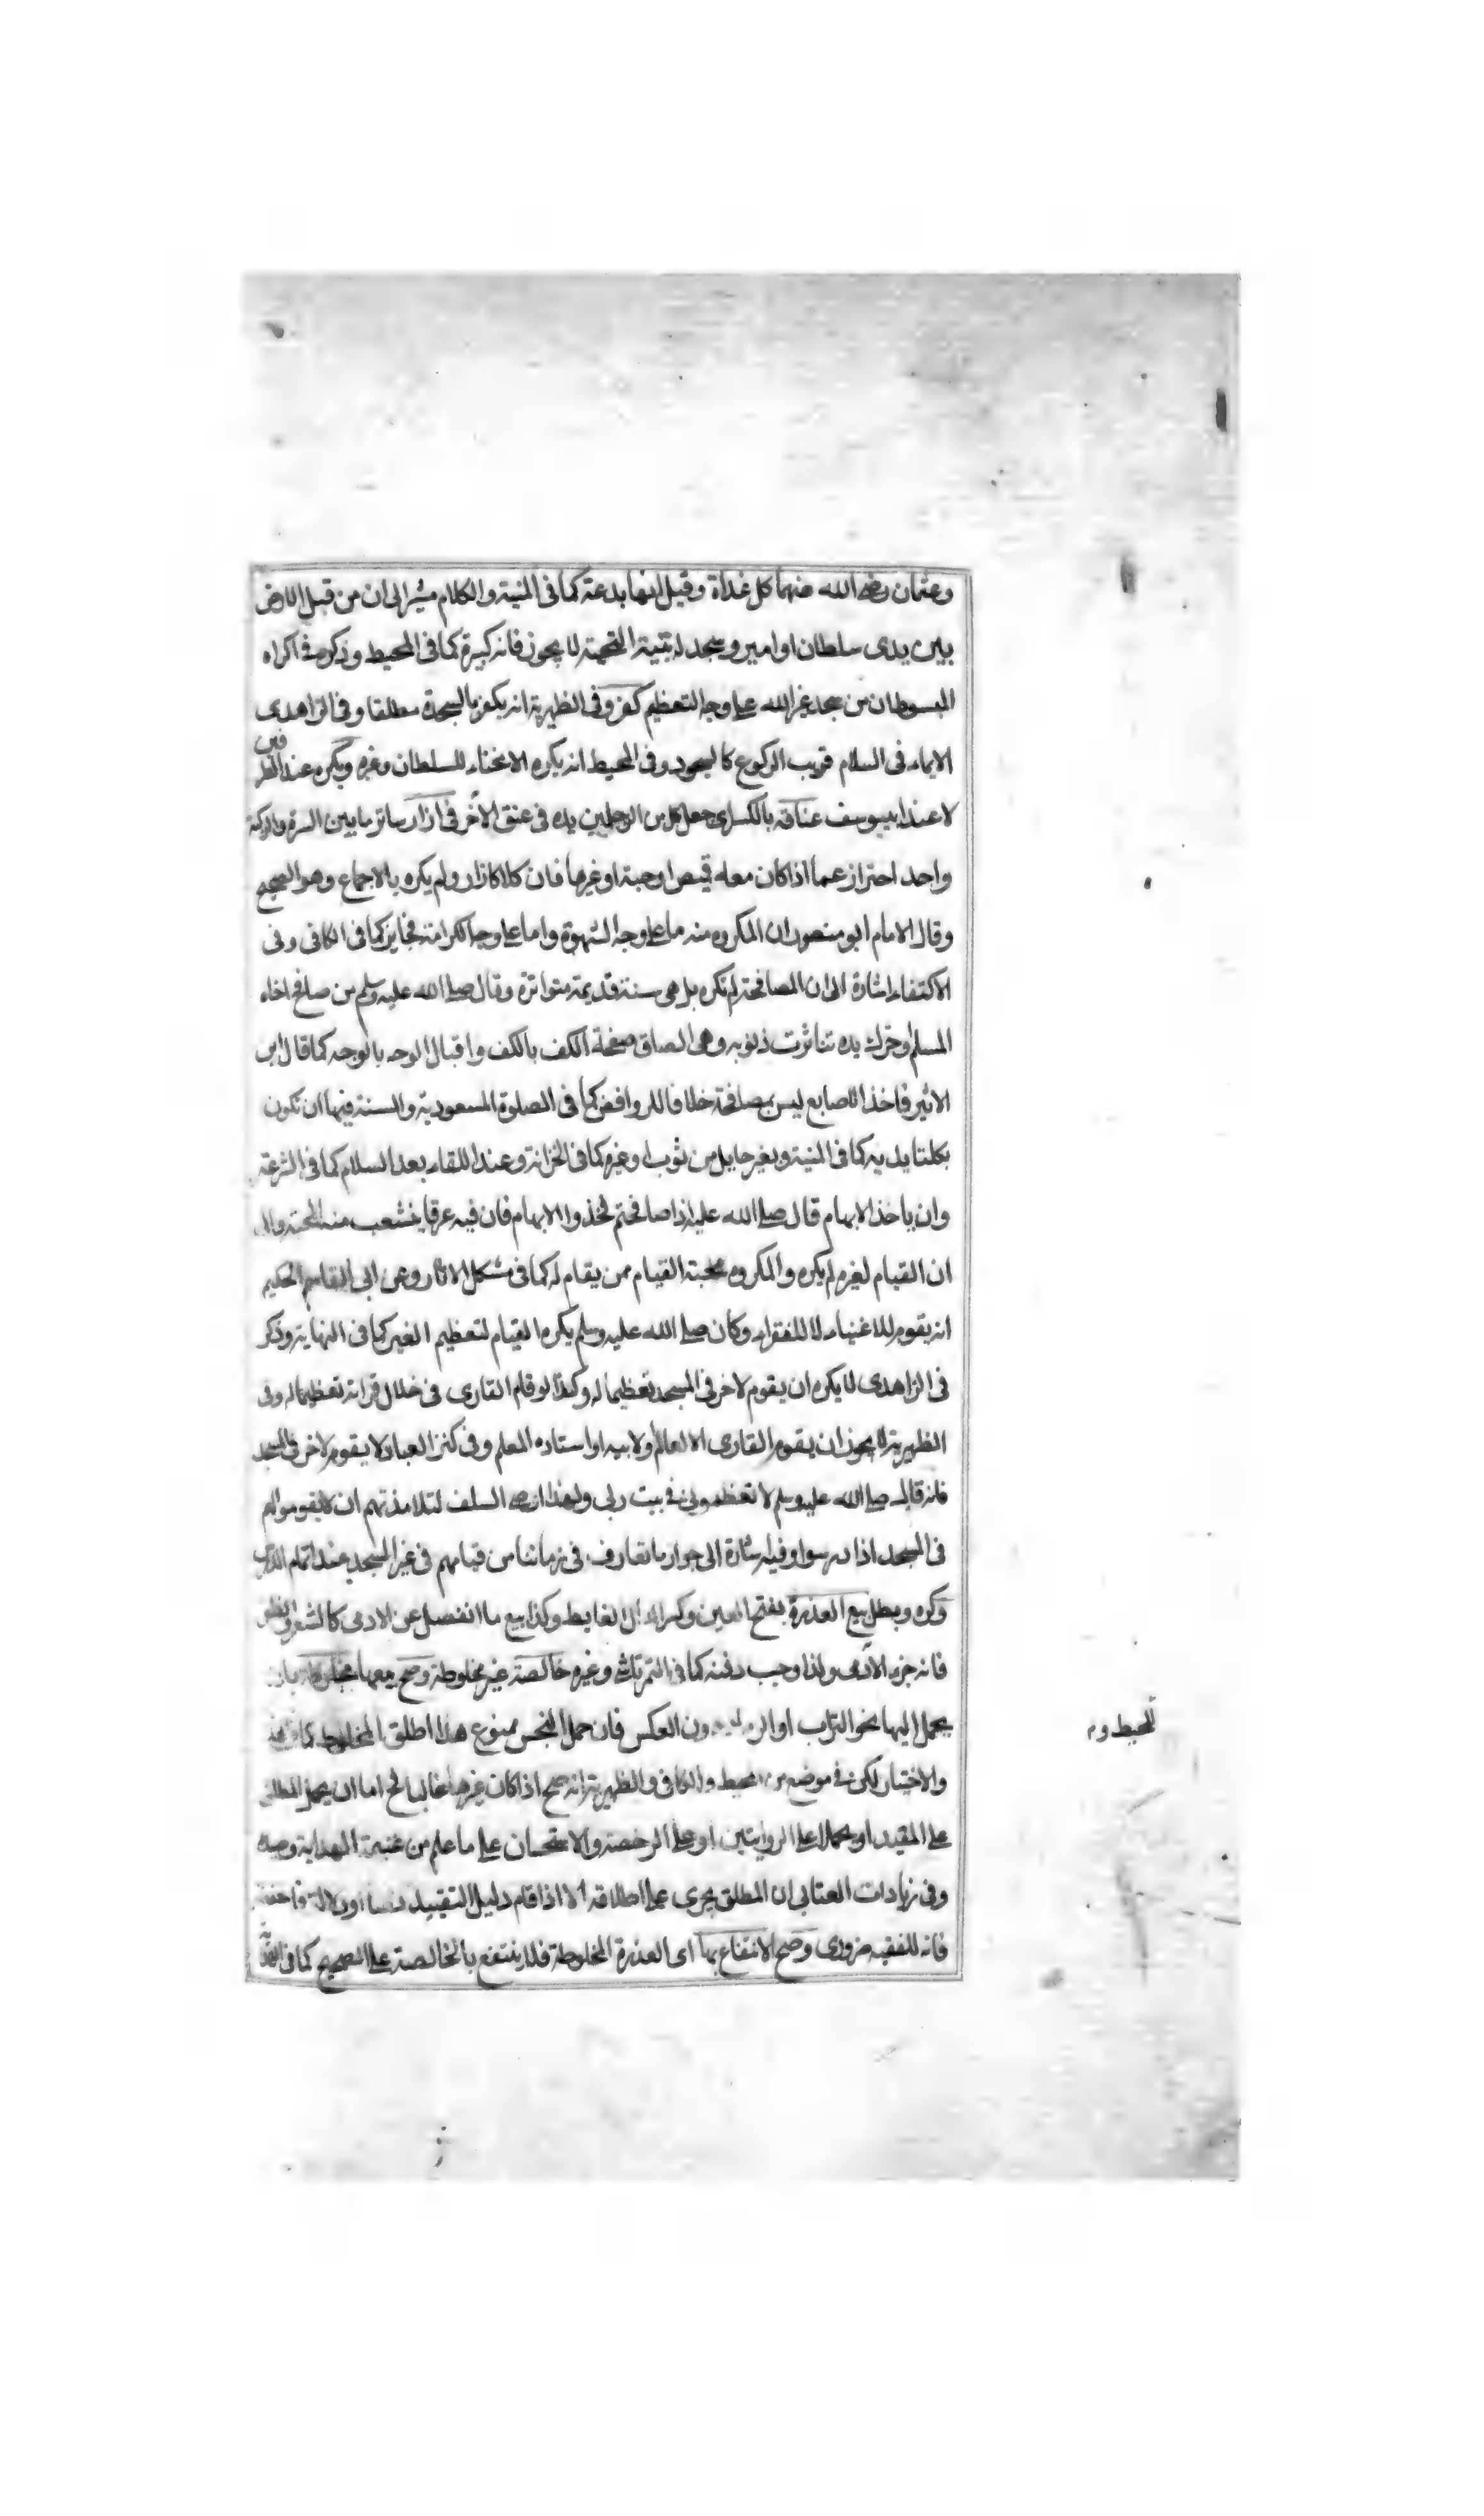 وعثمان رضي الله عنهما كل غداة وقيل انها بدعة كما في المنية والكلام مشير الى ان من قبل الارض
بين يدى سلطان او امير وسجد له بنية التحية لا يجوز فانه كبيرة كما في المحيط وذكر في اكراه
المبسوط ان من سجد لغير الله على وجه التعظيم كفر وفي الظهيرية انه يكفر بالسجدة مطلقا وفي الزاهدى
الايماء في السلام قريب الركوع كالسجود وفي المحيط انه يكره الانحناء للسلطان وغيره ويكره عند الطرفين
لا عند ابيوسف عناقه بالكسر اى جعل كل من الرجلين يده في عنق الآخر في ازار ساتر ما بين السرة والركبة
واحد احتراز عما اذا كان معه قميص او جبة او غيرها فان كلا كازار ولم يكره بالاجماع وهو الصحيح
وقال الامام ابو منصور ان المكروه منه ما على وجه الشهوة واما على وجه الكرامة فجايز كما في الكافى وفى
الاكتفاء اشارة الى ان المصافحة لم تكره بل هى سنة قديمة متواترة وقال صلى الله عليه وسلم من صافح اخاه
المسلم وحرك يده تناثرت ذنوبه وهى الصاق صفحة الكف بالكف واقبال الوجه بالوجه كما قال ابن
الاثير فاخذ الاصابع ليس بمصافحة خلافا للروافض كما في الصلوة المسعودية والسنة فيها ان تكون
بكلتا يديه كما في المنية وبغير حايل من ثوب او غيره كما في الخزانة وعند اللقاء بعد السلام كما في الشرعة
وان ياخذ الابهام قال صلى الله عليه اذا صافحتم فخذوا الابهام فان فيه عرقا ينشعب منه المحبة والى
ان القيام لغيره لم يكره والمكروه محبة القيام ممن يقام له كما في مشكل الاثار وعن ابى القاسم الحكيم
انه يقوم للاغنياء لا للفقراء وكان صلى الله عليه وسلم يكره القيام لتعظيم الغير كما في النهاية وذكر
في الزاهدى لا يكره ان يقوم لاخر في المسجد تعظيما له وكذا لو قام القارى في خلال قراته تعظيما له وفى
الظهيرية لا يجوز ان يقوم القارى الا لعالم او لابيه او استاده المعلم وفي كنز العباد لا يقوم لاخر في المسجد
فانه قال صلى الله عليه وسلم لا تعظموني في بيت ربى ولهذا السلف لتلامذتهم ان لا يقوموا لهم
في المسجد اذا وفيه اشارة الى جواز ما تعارف في زماننا من قيامهم في غير المسجد عند اتمام الدرس
وكره وبطل بيع العذرة بفتح العين وكسر الذال الغايط وكذا بيع ما انفصل عن الادمى كالشعر والظفر
فانه جزء الآدمى ولذا وجب دفنه كما في التمرتاشى وغيره خالصة غير مخلوطة وصح بيعها مخلوطة بان
يحمل اليها نحو التراب او الرماد دون العكس فان حمل النجس ممنوع هذا اطلق المخلوط كما في
والاختيار لكن في موضع من المحيط والكافى والظهيرية انه صح اذا كان غيرها غالبا فح اما ان يحمل المطلق
على المقيد او يحمل على الروايتين او على الرخصة والاستحسان على ما علم من الهداية
وفى زيادات العتابى ان المطلق يجرى على اطلاقه الا اذا قام دليل التقييد نصا او دلالة
فانه للفقيه ضرورى وصح الانتفاع بها اى العذرة المخلوطة فلا ينتفع بالخالصة على الصحيح كما في